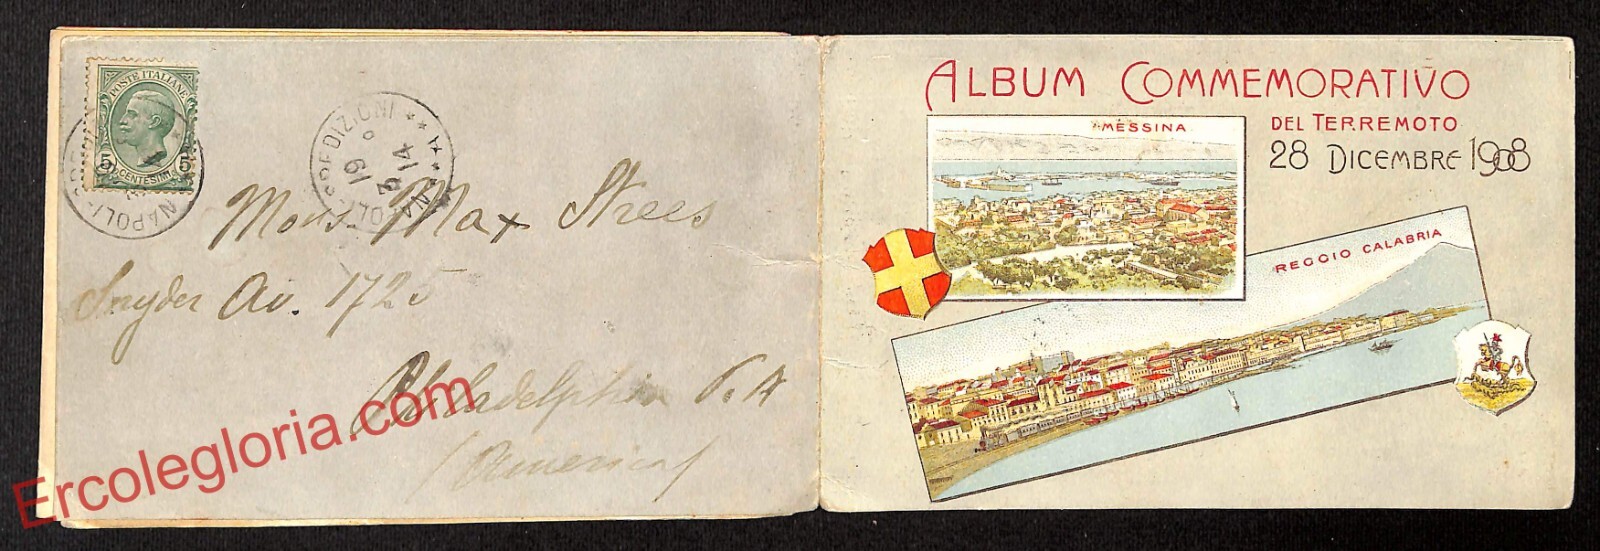 POSTE ITALIANE
5 5
CENTESIMI
NAPOLI
NAPOLI-SPEDIZIONI
19
14
Mons. Max Strees
Snyder Av. 1725
Philadelphia P.A
(America)
ALBUM COMMEMORATIVO
DEL TERREMOTO
28 DICEMBRE 1908
MESSINA
REGGIO CALABRIA
Ercolegloria.com